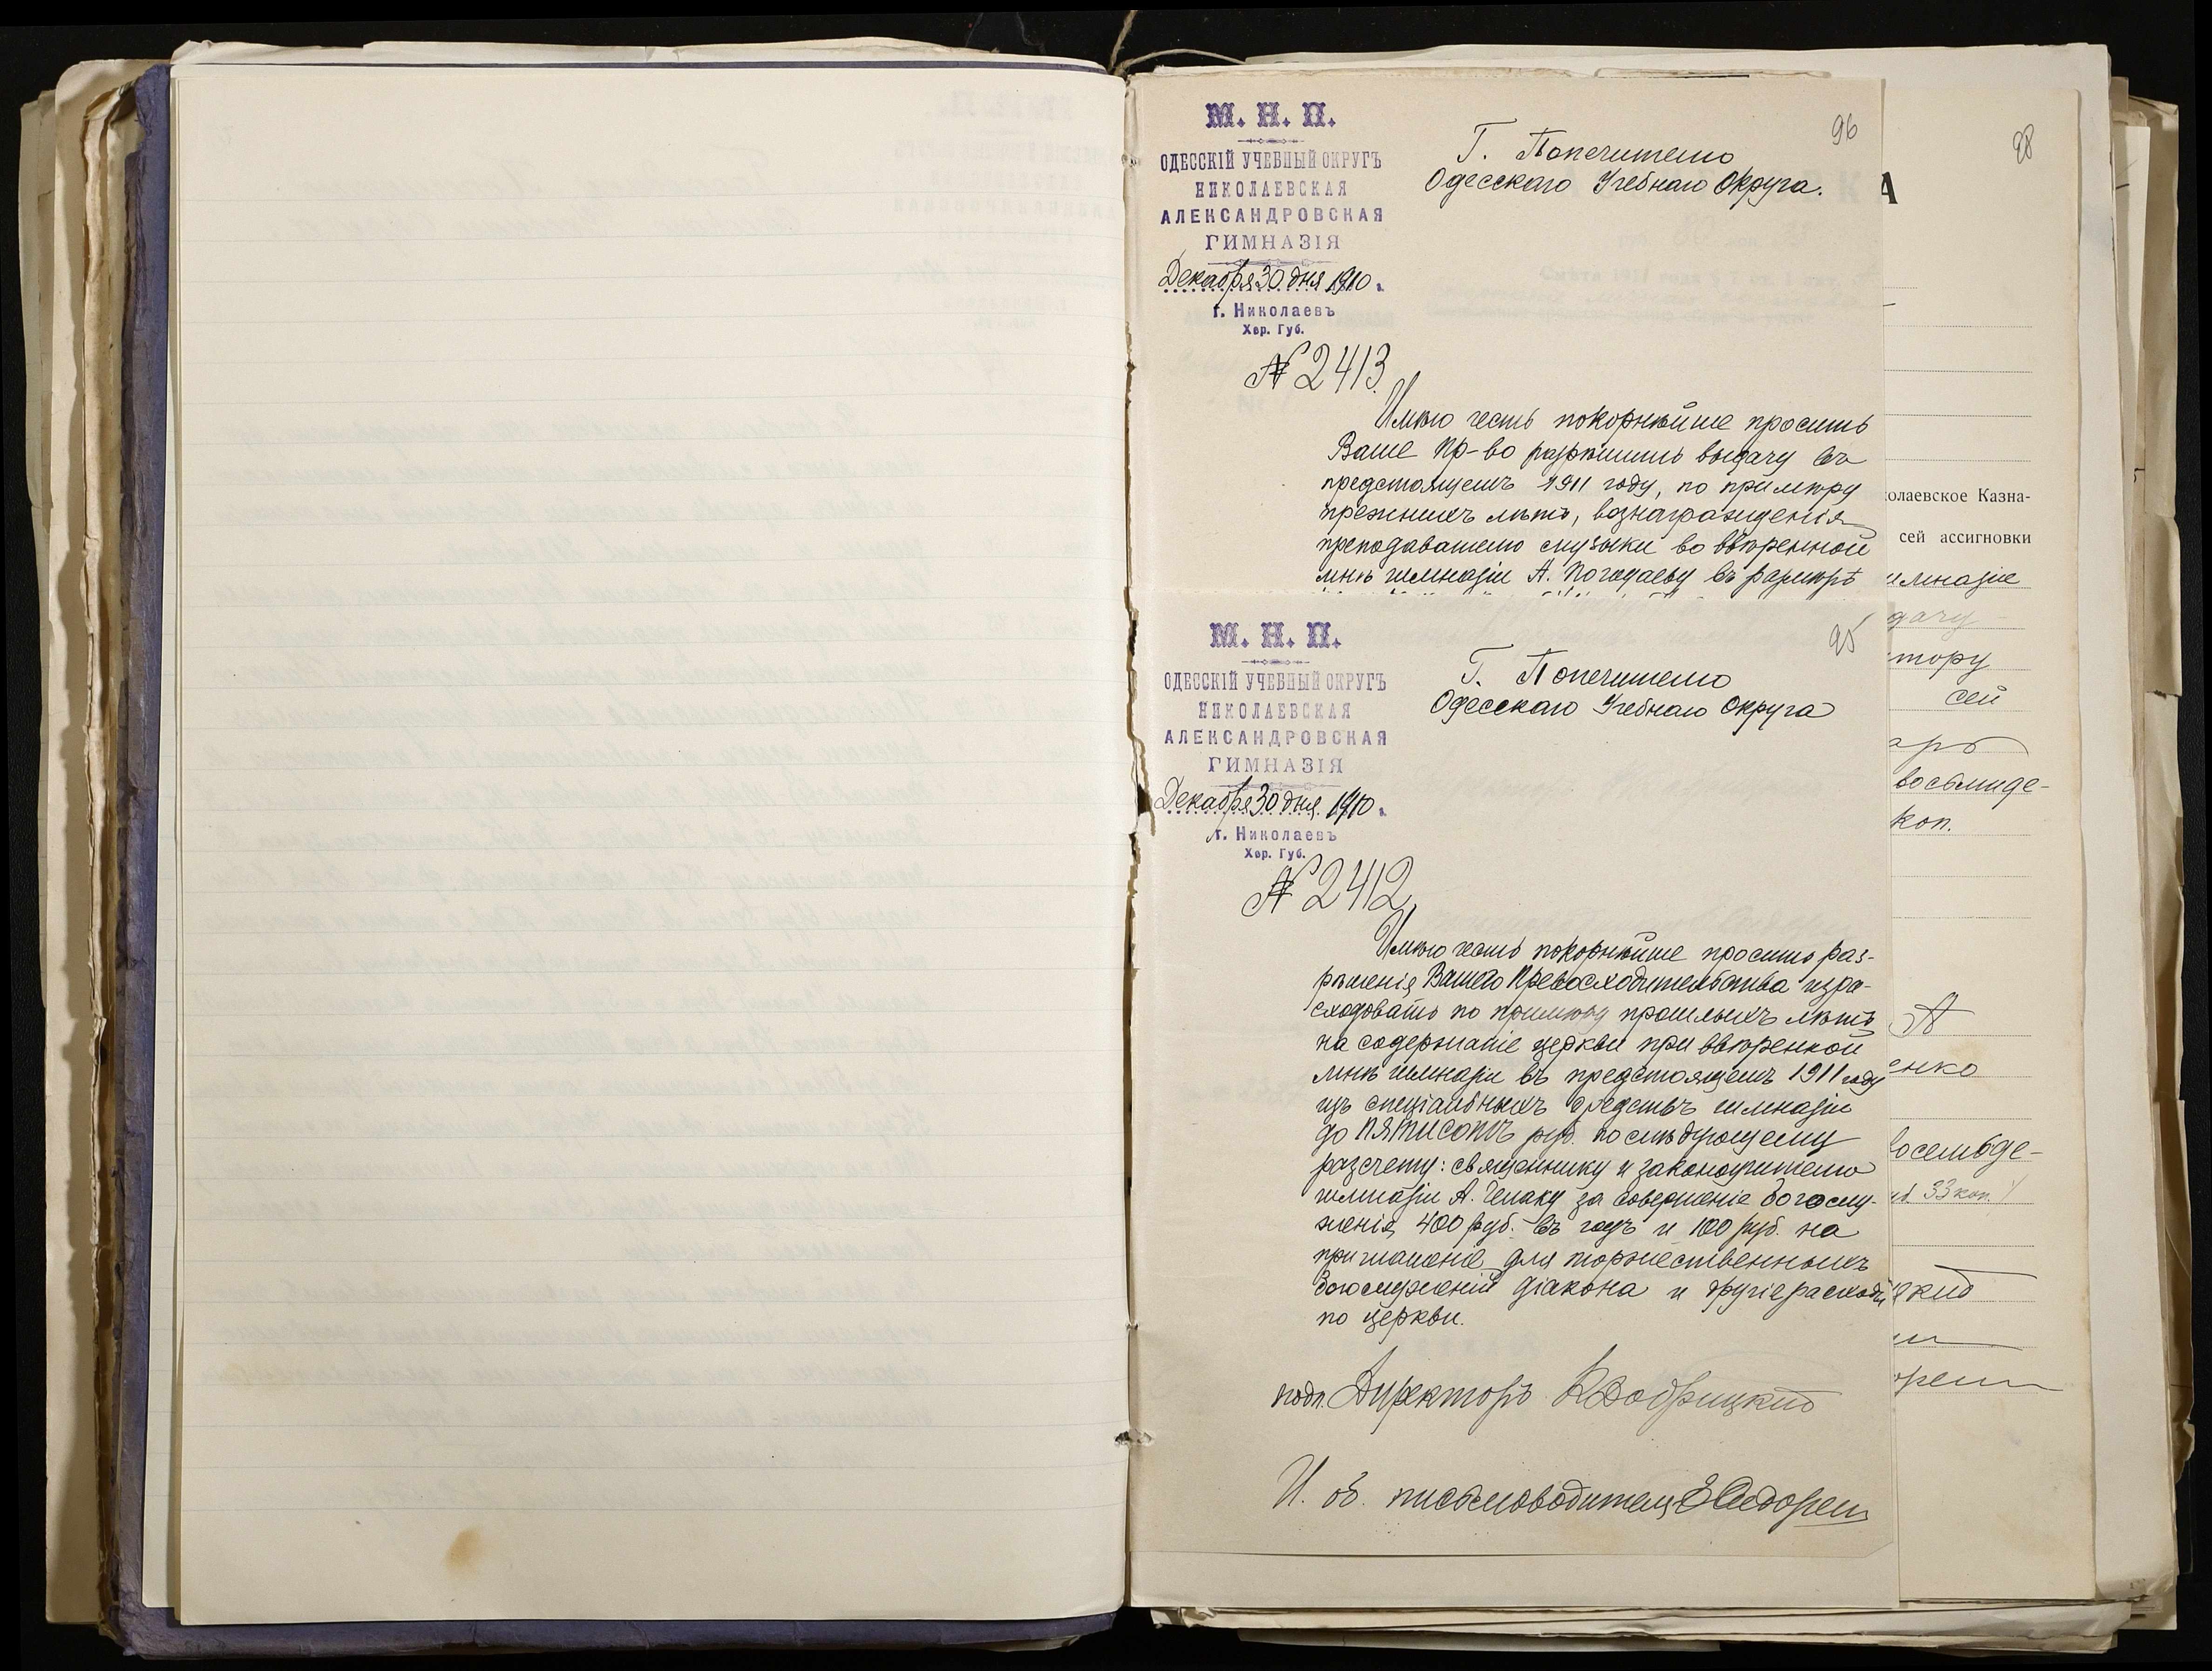 М. Н. П.
ОДЕССКІЙ УЧЕБНЫЙ ОКРУГЪ
НИКОЛАЕВСКАЯ
АЛЕКСАНДРОВСКАЯ
ГИМНАЗІЯ
Декабря 30 дня 1910 г.
г. Николаевъ
Хер. Губ.
№ 2413.
96
Г. Попечителю
Одесскаго Учебнаго Округа.
Имѣю честь покорнѣйше просить
Ваше Пр-во разрѣшить выдачу въ
предстоящемъ 1911 году, по примѣру
прежнихъ лѣтъ, вознагражденія
преподавателю музыки во ввѣренной
мнѣ гимназіи А. Погодаеву въ размѣрѣ
М. Н. П.
ОДЕССКІЙ УЧЕБНЫЙ ОКРУГЪ
НИКОЛАЕВСКАЯ
АЛЕКСАНДРОВСКАЯ
ГИМНАЗІЯ
Декабря 30 дня 1910 г.
г. Николаевъ
Хер. Губ.
№ 2412
95
Г. Попечителю
Одесскаго Учебнаго Округа
Имѣю честь покорнѣйше просить раз-
рѣшенія Вашего Превосходительства изра-
сходовать по примѣру прошлыхъ лѣтъ
на содержаніе церкви при ввѣренной
мнѣ гимназіи въ предстоящемъ 1911 году
изъ спеціальныхъ средствъ гимназіи
до пятисотъ руб. по слѣдующему
разсчету: священнику и законоучителю
гимназіи А. Чемаку за совершеніе богослу-
женія 400 руб. въ годъ и 100 руб. на
приглашеніе для торжественныхъ
богослуженій діакона и другіе расходы
по церкви.
подп. Директоръ К Добрицкій
И. об. письмоводителя
98
А
олаевское Казна-
сей ассигновки
имназіе
дачу
тору
сей
арь
восьмиде-
коп.
енко
восемьде-
33 коп.